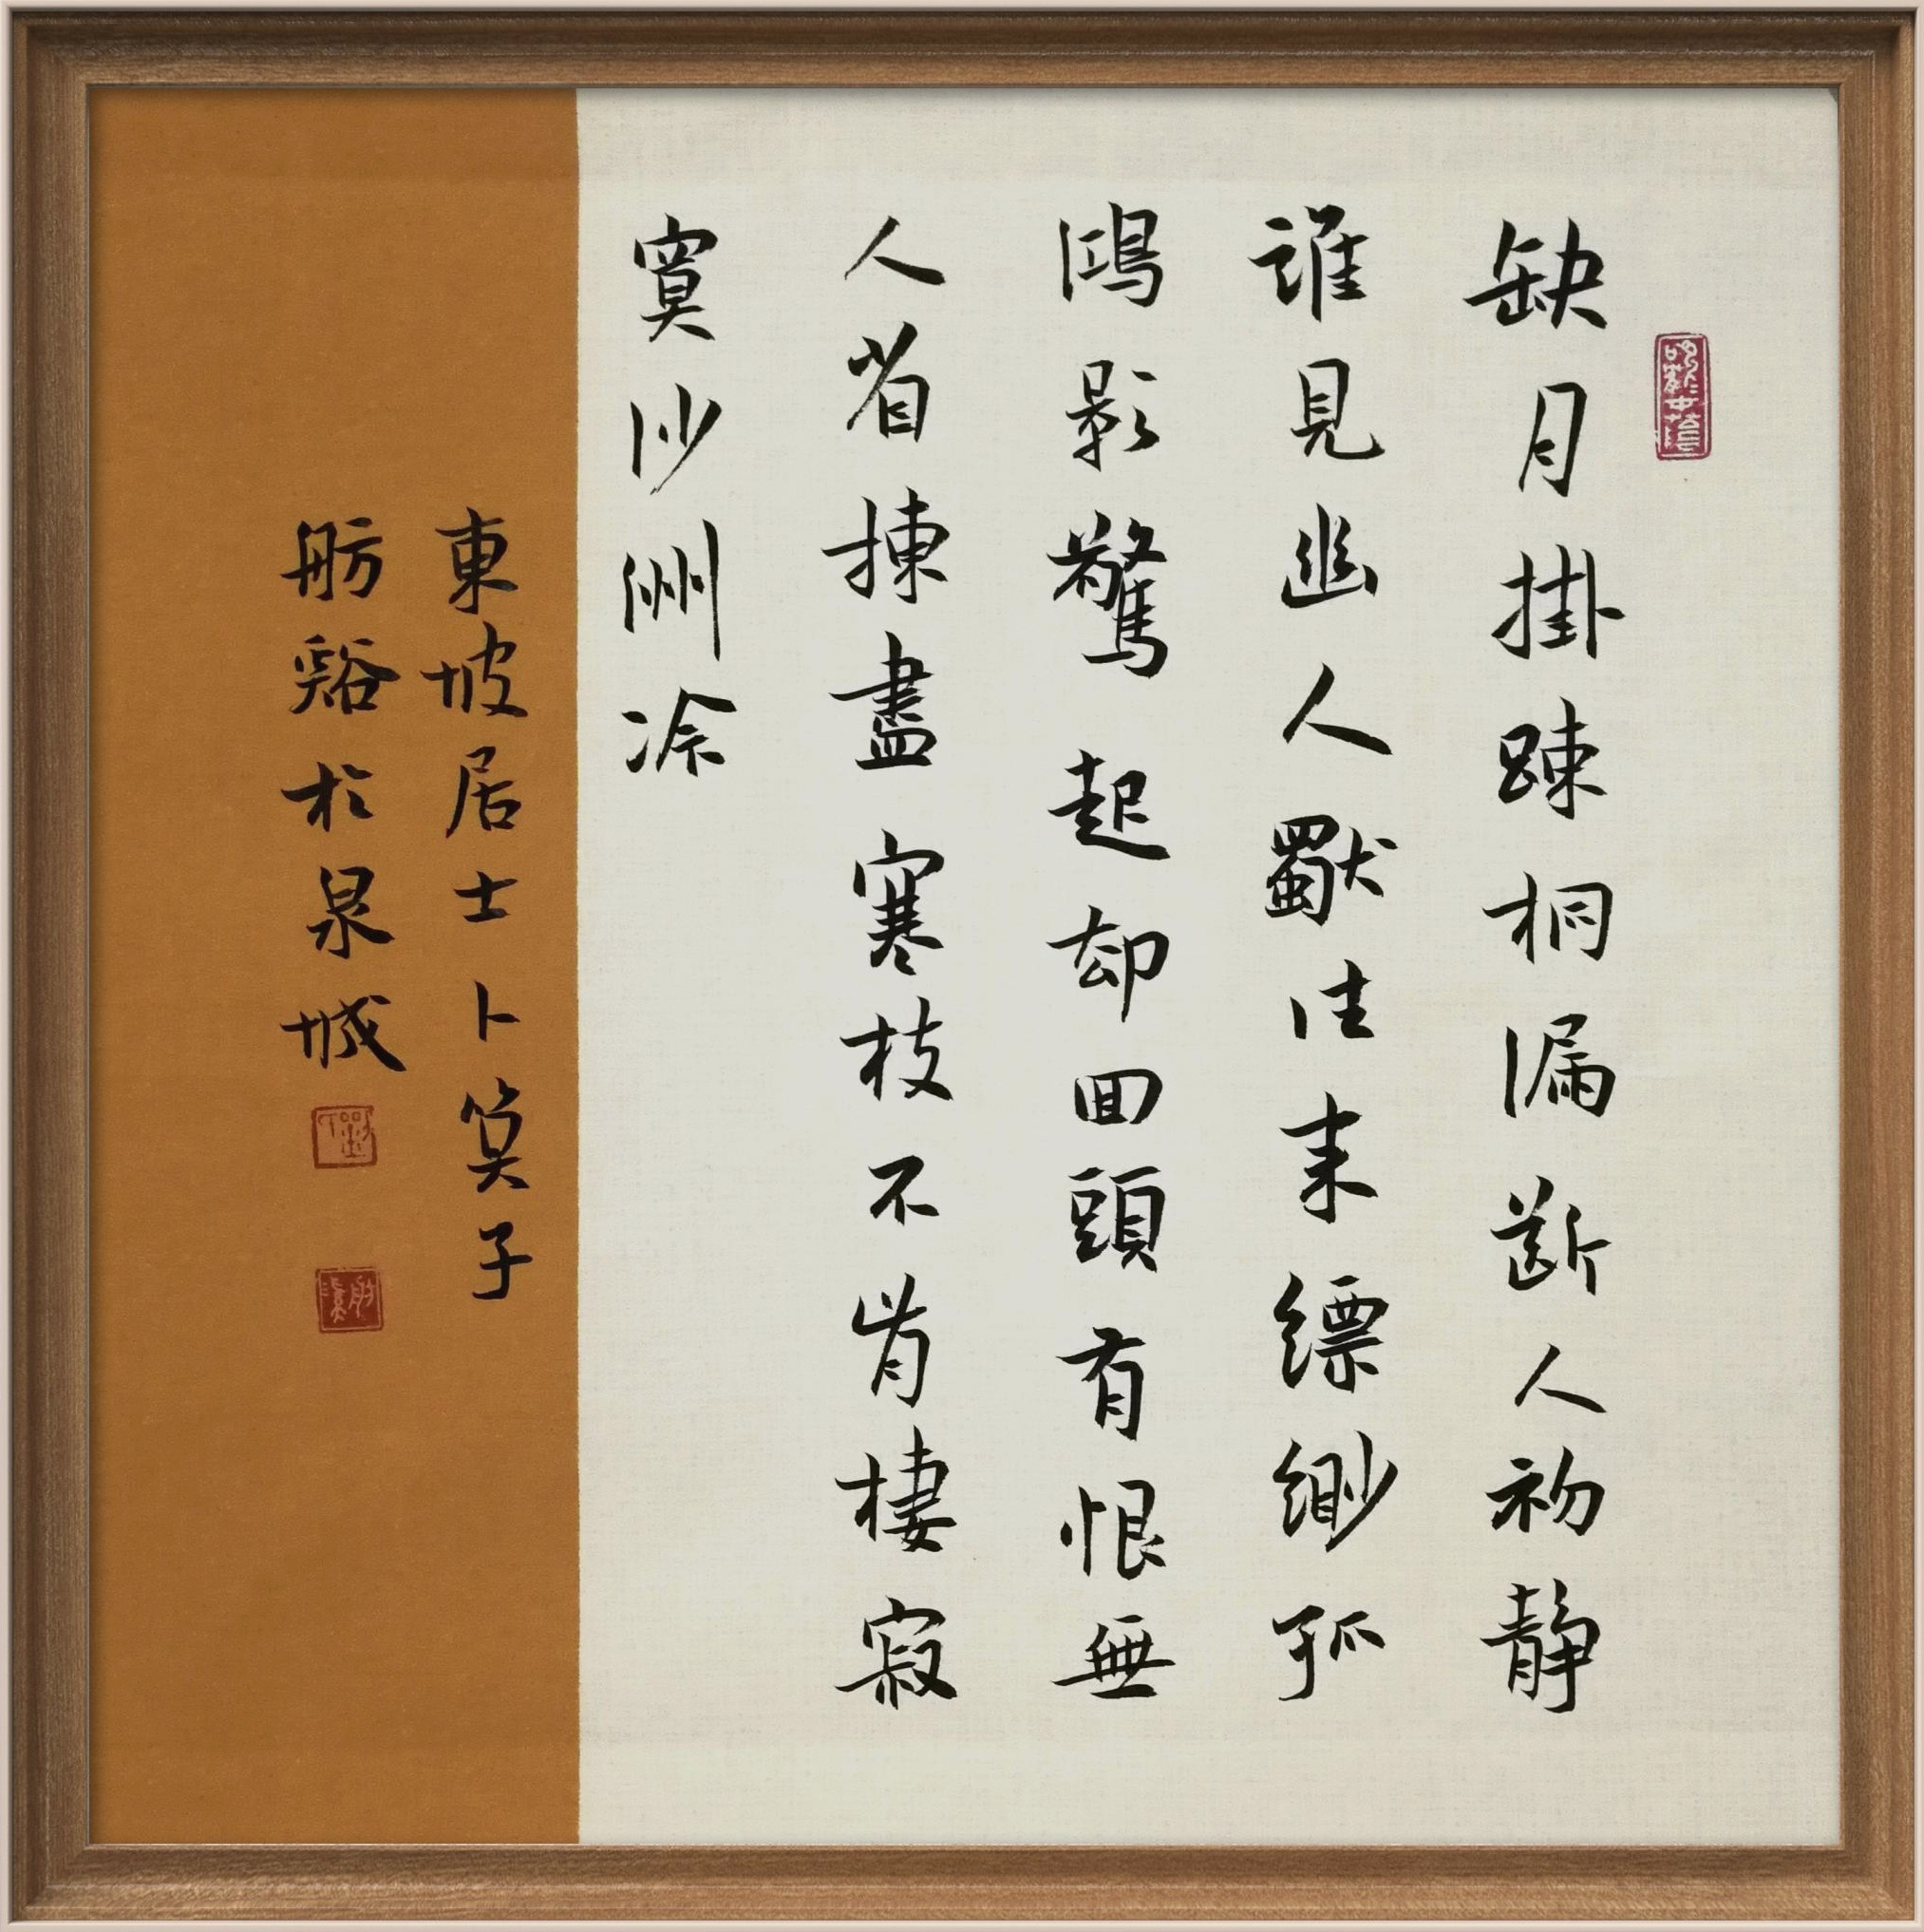 缺月掛疎桐漏斷人初静
誰見幽人獨往来縹緲孤
鴻影驚起却回頭有恨無
人省揀盡寒枝不肯棲寂
寞沙洲冷
東坡居士卜算子
舫谿於泉城